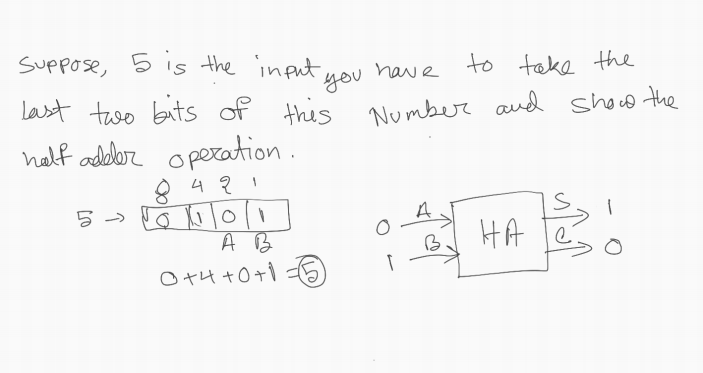 Suppose, 5 is the input you have to take the
last two bits of this Number and show the
half adder operation.
8 4 2 1
5 → 0 1 0 1
A B
0+4+0+1=5
0 A HA S 1
1 B C 0